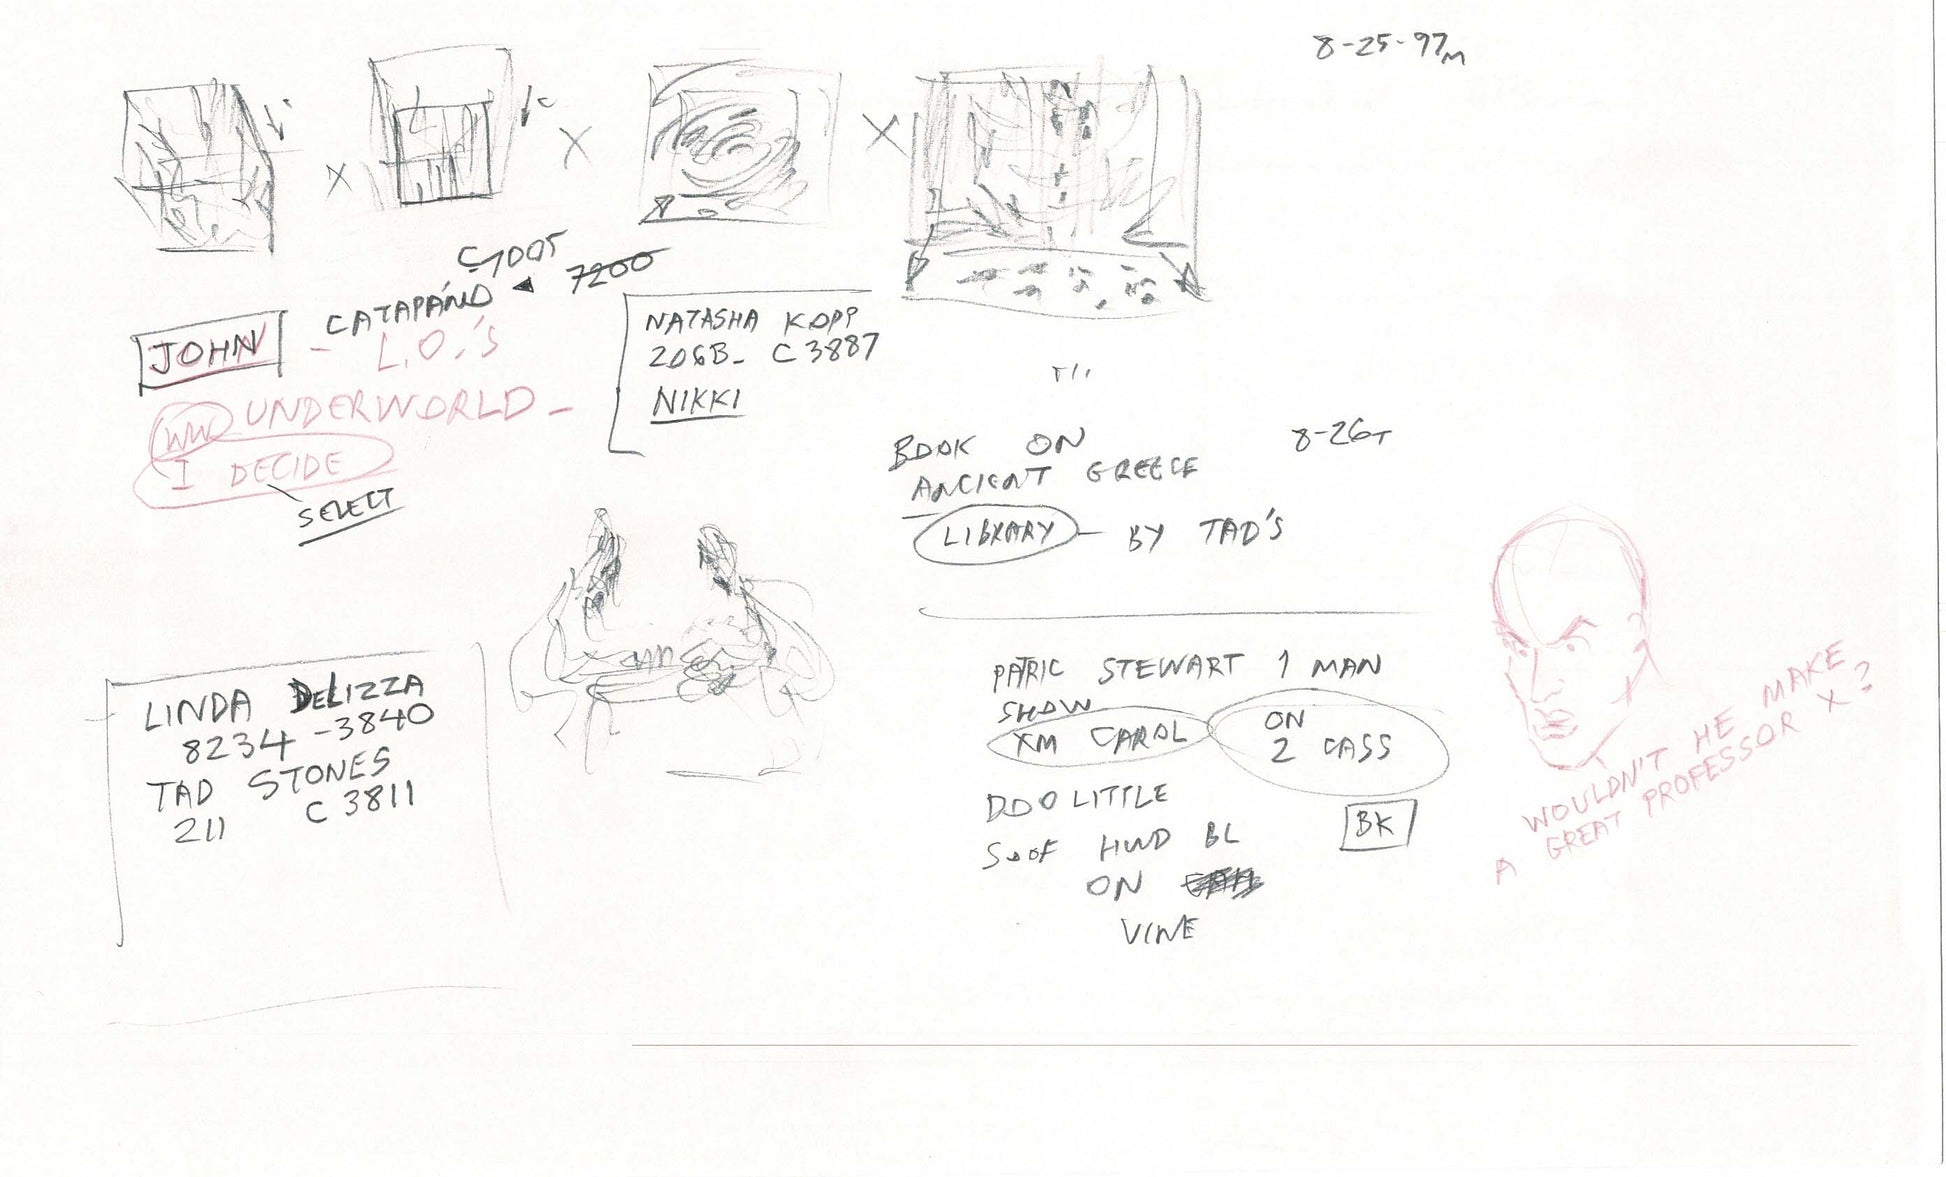 8-25-97M
C7005
CATAPANO ◄ 7200
JOHN - L.O.'S
WW UNDERWORLD -
I DECIDE
SELECT
NATASHA KOPP
206B- C 3887
NIKKI
8-26T
BOOK ON
ANCIENT GREECE
LIBRARY - BY TAD'S
LINDA DELIZZA
8234 - 3840
TAD STONES
211 C 3811
PATRIC STEWART 1 MAN
SHOW
XM CAROL ON
2 CASS
DOOLITTLE
S OF HWD BL
ON
VINE
BK
WOULDN'T HE MAKE
A GREAT PROFESSOR X?